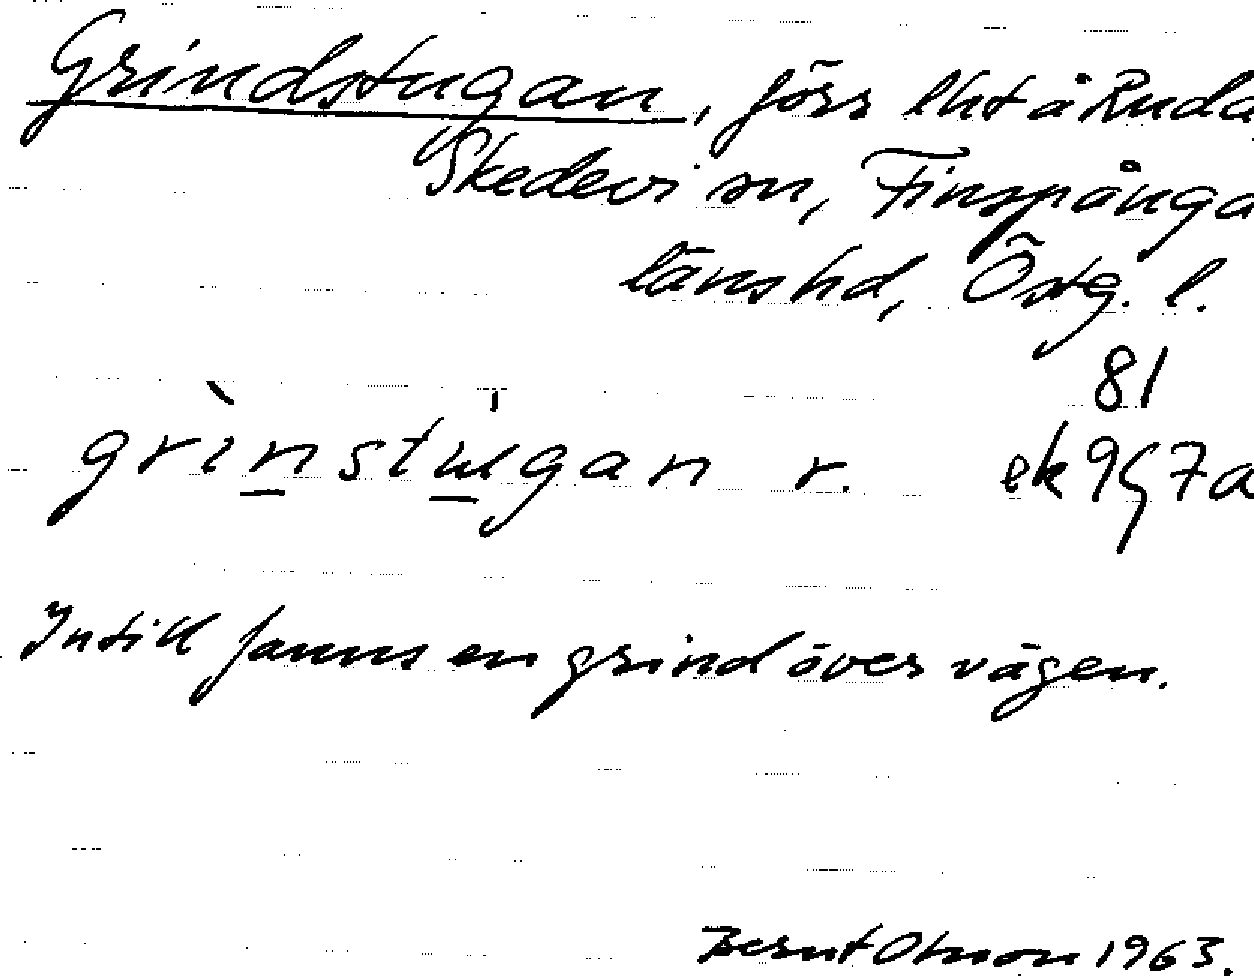 Grindstugan, förs lht å Ruda
Skedevi sn, Finspånga
länshd, Östg. l.
81
grinstugan r. ek 9G7a
Intill fanns en grind över vägen.
Bernt Olsson 1963.